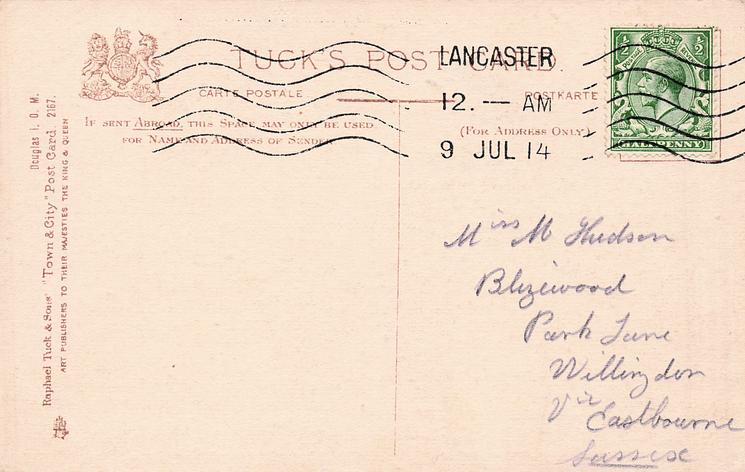 TUCK'S POST CARD.
CARTE POSTALE
POSTKARTE
IF SENT ABROAD, THIS SPACE MAY ONLY BE USED
FOR NAME AND ADDRESS OF SENDER
(FOR ADDRESS ONLY)
LANCASTER
12. — AM
9 JUL 14
½ ½
HALFPENNY
Douglas I. O. M.
Raphael Tuck & Sons' "Town & City" Post Card. 2167.
ART PUBLISHERS TO THEIR MAJESTIES THE KING & QUEEN
Miss M Hudson
Park Lane
Willingdon
Via Eastbourne
Sussex